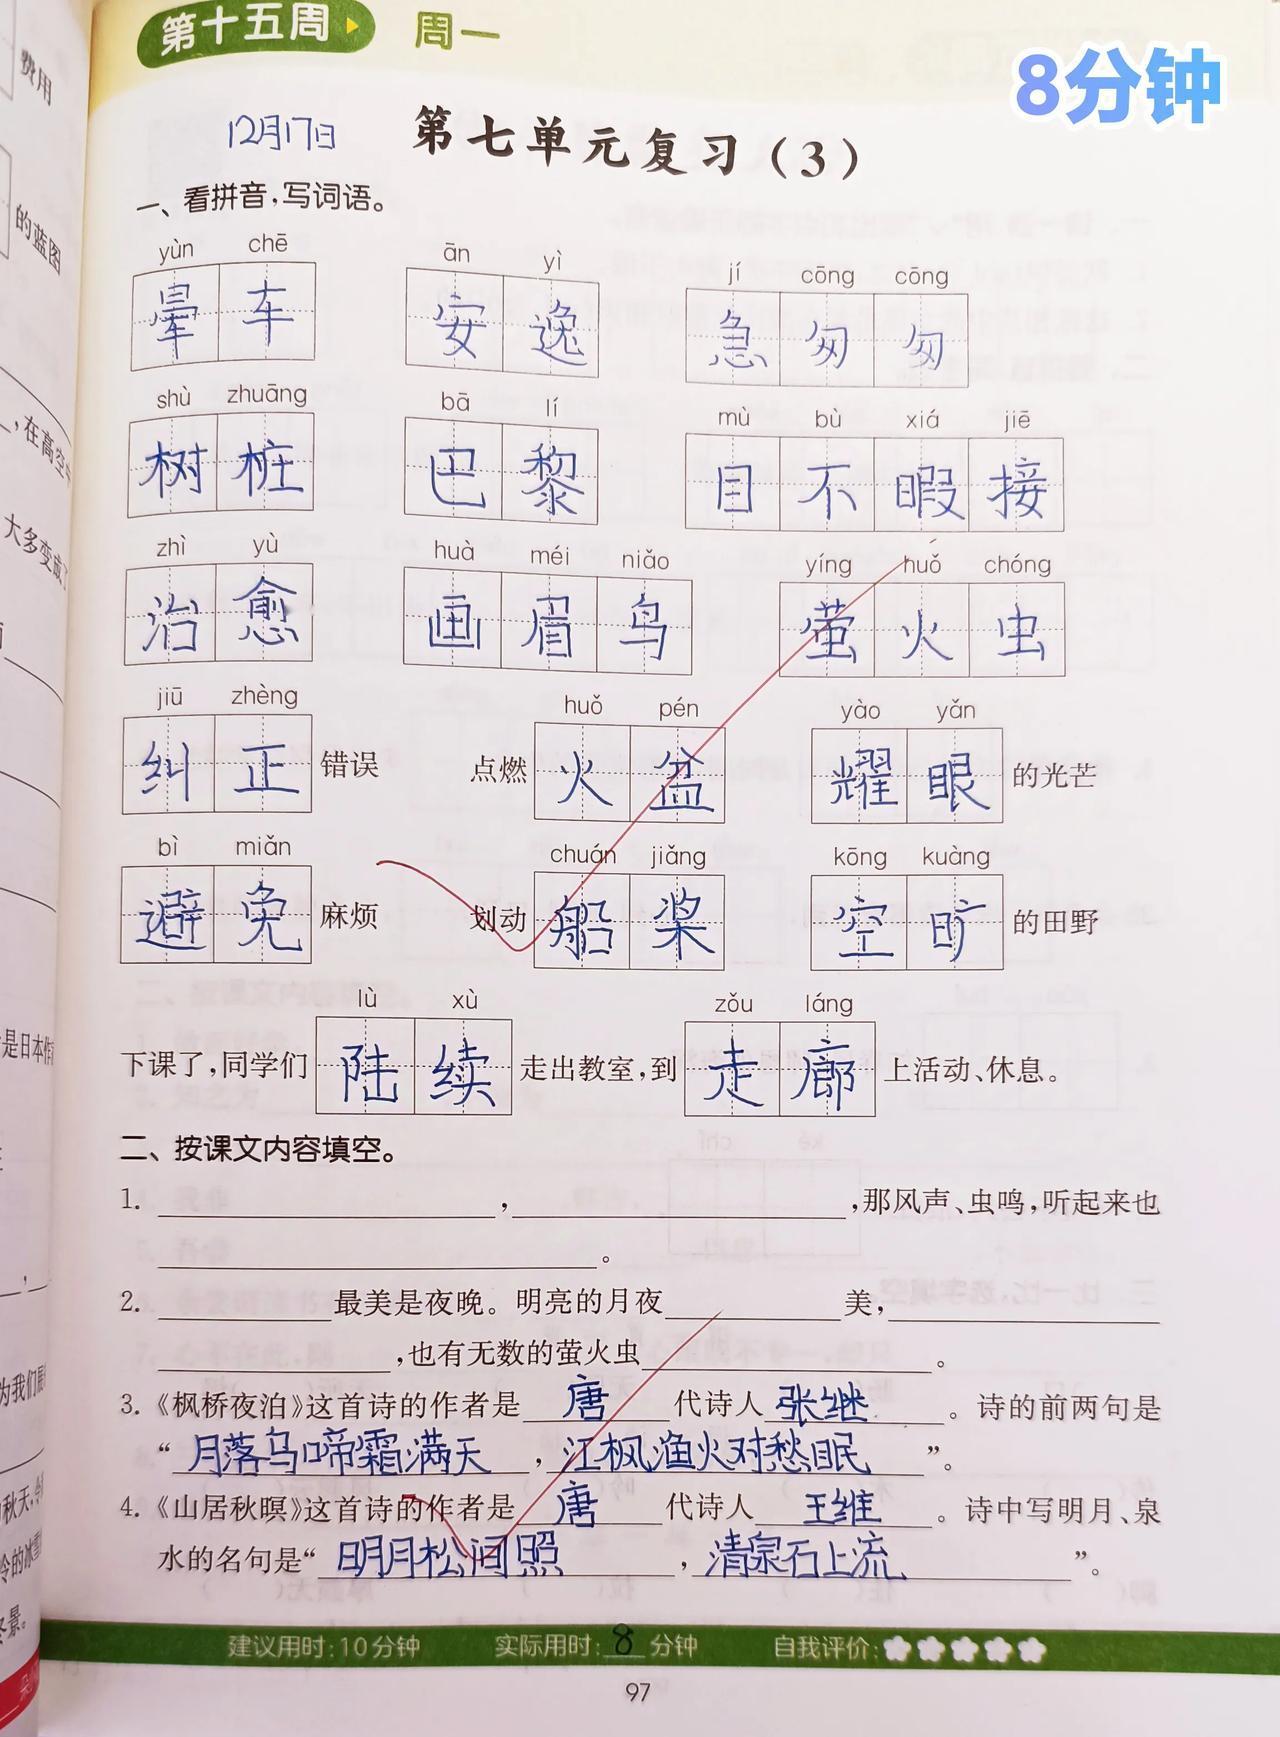 第十五周 周一
8分钟
12月17日 第七单元复习(3)
一、看拼音,写词语。
yùn chē ān yì jí cōng cōng
晕车 安逸 急匆匆
shù zhuāng bā lí mù bù xiá jiē
树桩 巴黎 目不暇接
zhì yù huà méi niǎo yíng huǒ chóng
治愈 画眉鸟 萤火虫
jiū zhèng huǒ pén yào yǎn
纠正错误 点燃火盆 耀眼的光芒
bì miǎn chuán jiǎng kōng kuàng
避免麻烦 划动船桨 空旷的田野
lù xù zǒu láng
下课了,同学们陆续走出教室,到走廊上活动、休息。
二、按课文内容填空。
1. ,,那风声、虫鸣,听起来也
。
2. 最美是夜晚。明亮的月夜 美,
,也有无数的萤火虫 。
3.《枫桥夜泊》这首诗的作者是唐代诗人张继。诗的前两句是
“月落乌啼霜满天,江枫渔火对愁眠”。
4.《山居秋暝》这首诗的作者是唐代诗人王维。诗中写明月、泉
水的名句是“明月松间照,清泉石上流”。
建议用时:10分钟 实际用时:8分钟 自我评价:
97
费用
的蓝图
,在高空
大多变成
是日本作
为我们展
的秋天,
冷的冰雪
冬景。